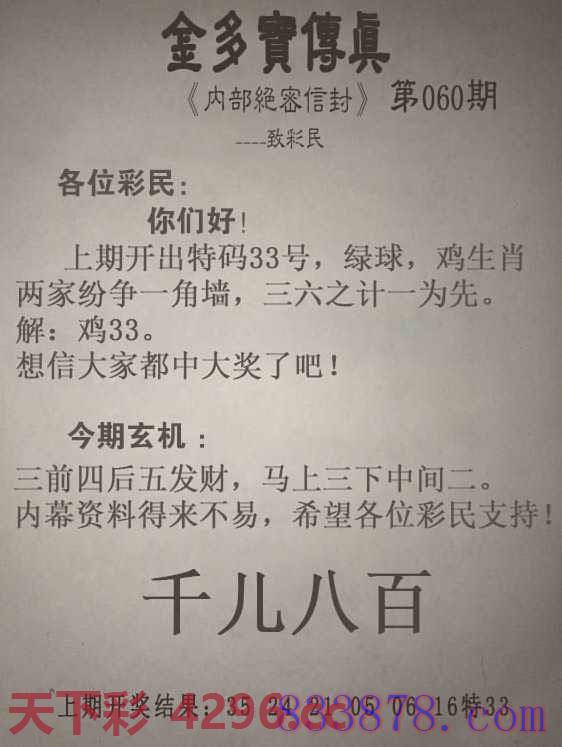 金多寶傳真
《内部絕密信封》 第060期
----致彩民
各位彩民：
你们好！
上期开出特码33号，绿球，鸡生肖
两家纷争一角墙，三六之计一为先。
解：鸡33。
想信大家都中大奖了吧！
今期玄机：
三前四后五发财，马上三下中间二。
内幕资料得来不易，希望各位彩民支持！
千儿八百
上期开奖结果：35 24 21 05 06 16特33
天下彩 4296.cc
838878.com